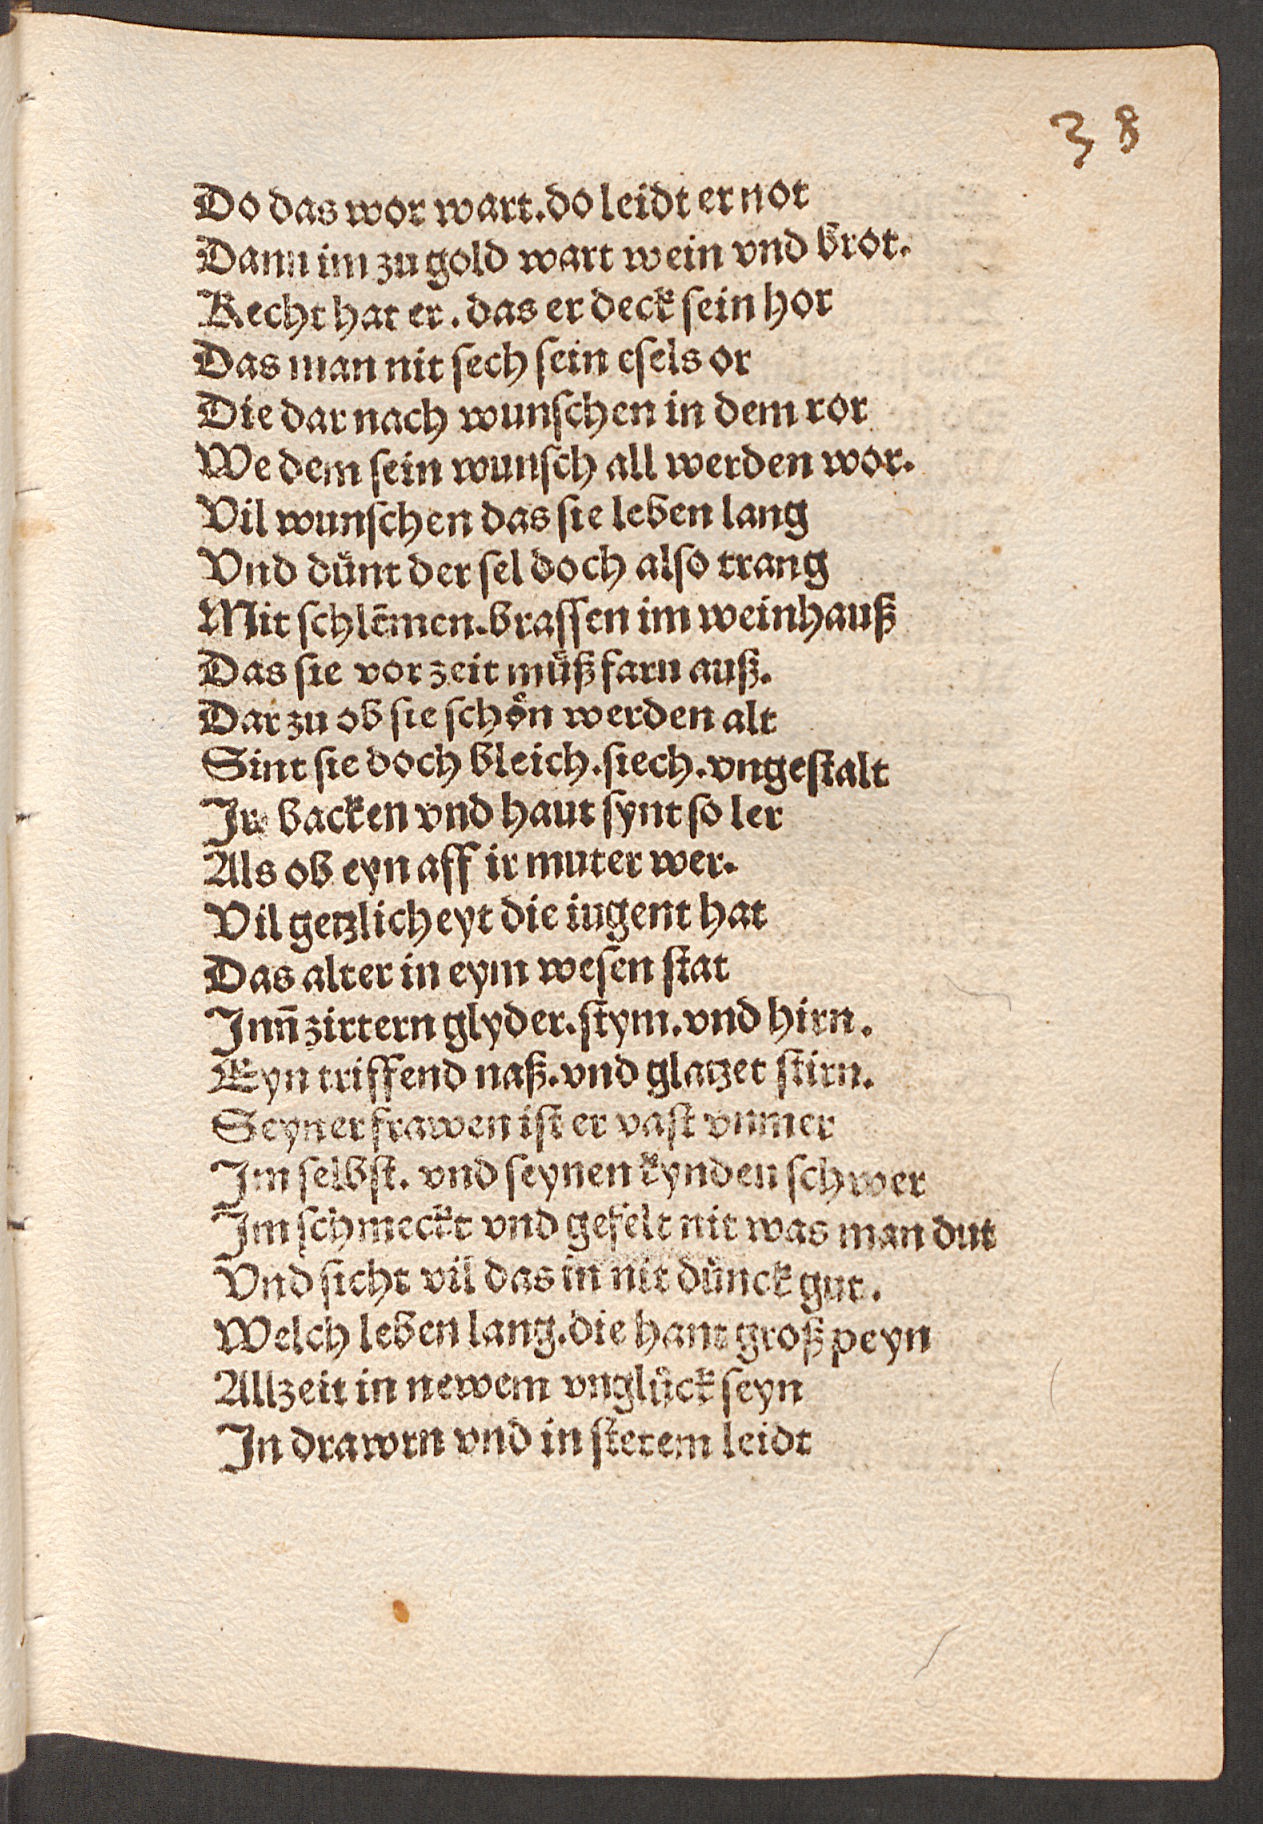 38
Do das wor wart. do leidt er not
Dann im zu gold wart wein vnd brot.
Recht hat er. das er deck sein hor
Das man nit sech sein esels or
Die dar nach wunschen in dem ror
We dem sein wunsch all werden wor.
Vil wunschen das sie leben lang
Vnd duͤnt der sel doch also trang
Mit schlēmen. brassen im weinhauß
Das sie vor zeit muͤß farn auß.
Dar zu ob sie schoͤn werden alt
Sint sie doch bleich. siech. vngestalt
Ir backen vnd haut synt so ler
Als ob eyn aff ir muter wer.
Vil getzlicheyt die iugent hat
Das alter in eym wesen stat
Inn̄ zirtern glyder. stym. vnd hirn.
Eyn triffend naß. vnd glatzet stirn.
Seyner frawen ist er vast vnmer
Im selbst. vnd seynen kynden schwer
Im schmeckt vnd gefelt nit was man dut
Vnd sicht vil das in nit duͤnck gut.
Welch leben lang. die hant groß peyn
Allzeit in newem vngluͤck seyn
In drawrn vnd in stetem leidt